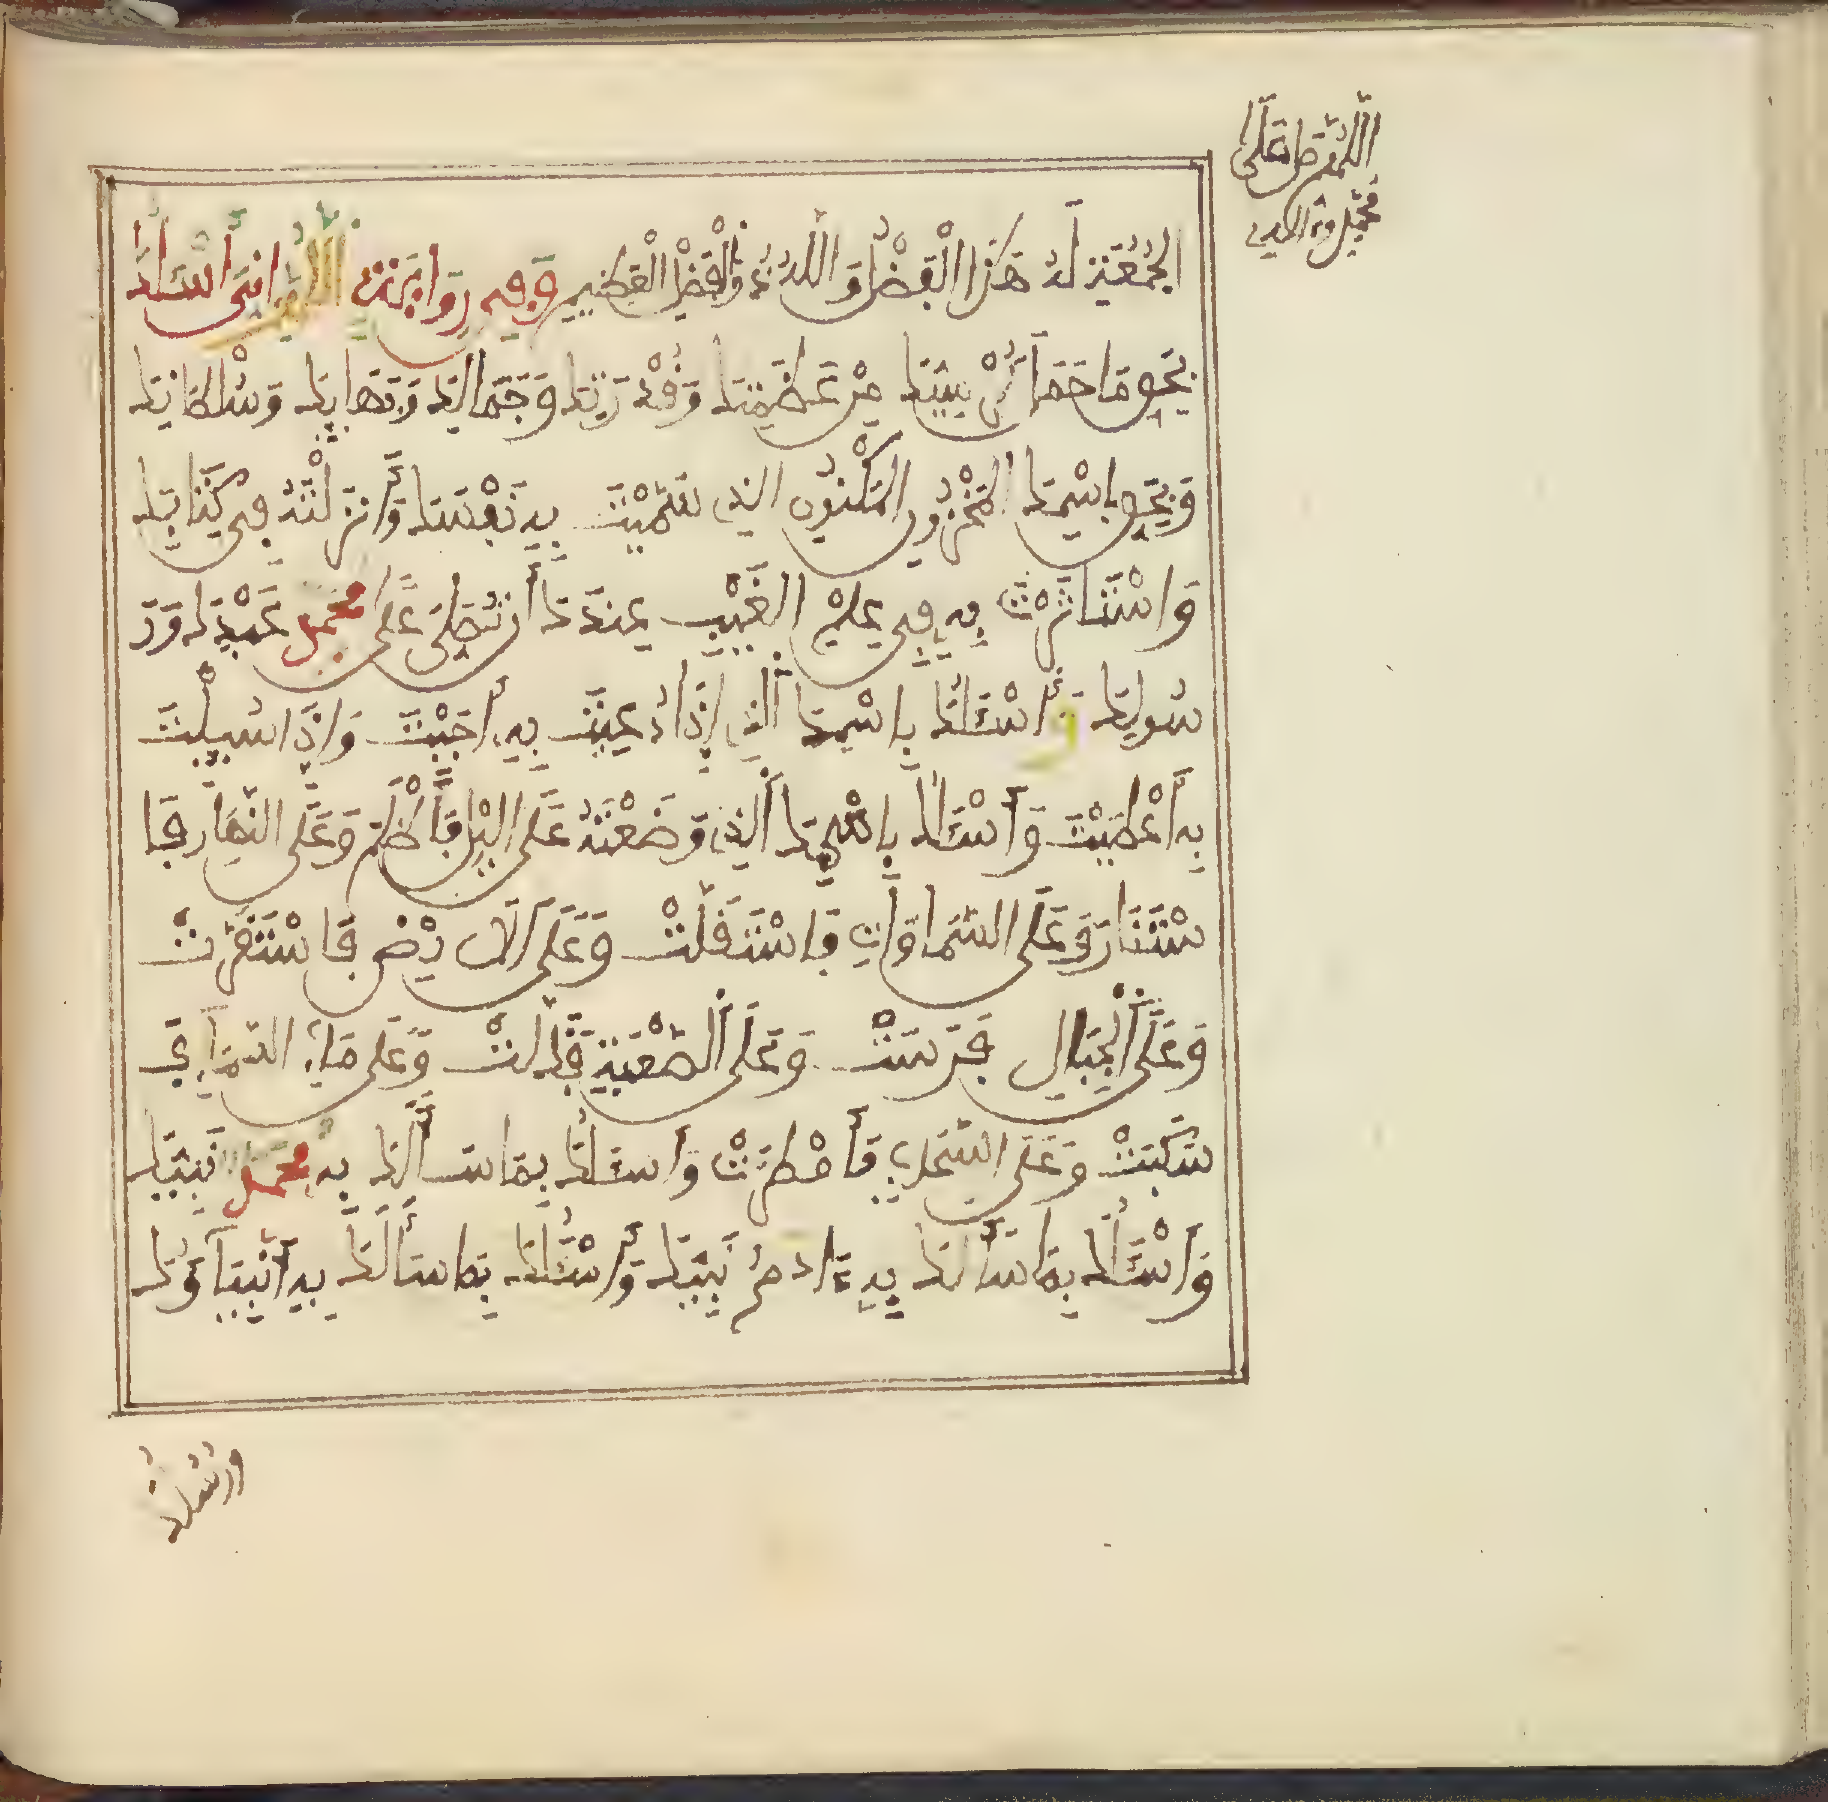 اللهم صل على
محمد وءاله
الجمعة له هذا الفضل والله ذو الفضل العظيم وفي رواية اللهم اني أسألك
بحق ما حمل كرسيك من عظمتك وقدرتك وجمالك وبهايك وسلطانك
وبحق اسمك المخزون المكنون الذي سميت به نفسك وأنزلته في كتابك
واستاثرت به في علم الغيب عندك أن تصلي على محمد عبدك ور
سولك وأسئلك باسمك الذي إذا دعيت به أجبت وإذا سيلت
به أعطيت وأسئلك باسمك الذي وضعته على اليل فأظلم وعلى النهار فا
ستنار وعلى السماوات فاستقلت وعلى الارض فاستقرت
وعلى الجبال فرست وعلى الصعبة فذلت وعلى ماء السماء ف
سكبت وعلى السحاب فأمطرت وأسئلك بما سألك به محمد نبيك
وأسئلك بما سألك به ءادم نبيك وأسئلك بما سألك به أنبياؤك
ورسلك